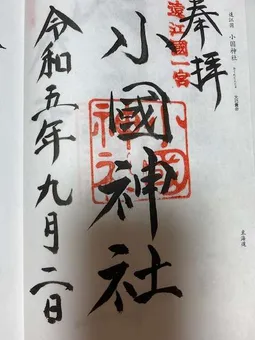 奉拝
遠江國一宮
小國神社
令和五年九月二日
遠江国 小国神社
東海道